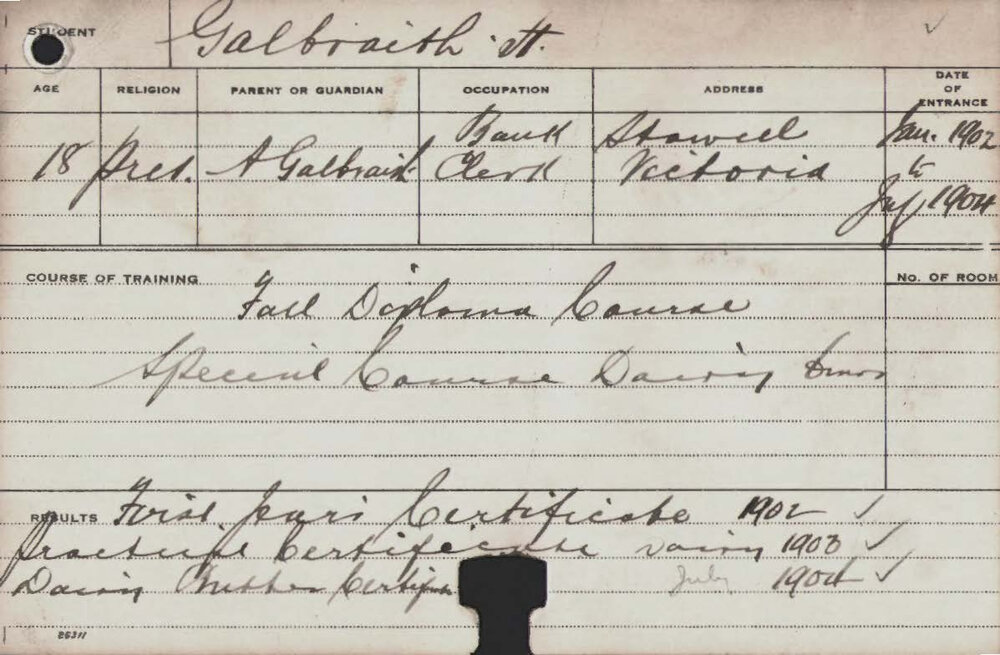 STUDENT Galbraith H.
AGE RELIGION PARENT OR GUARDIAN OCCUPATION ADDRESS DATE OF ENTRANCE
Bank Stawell Jan. 1902
18 Pres. A Galbraith Clerk Victoria to
1904
COURSE OF TRAINING No. OF ROOM
Full Diploma Course
Special Course Dairy
RESULTS First Years Certificate 1902 ✓
Practical Certificate Dairy 1903 ✓
Dairy Butter July 1904 ✓
86311